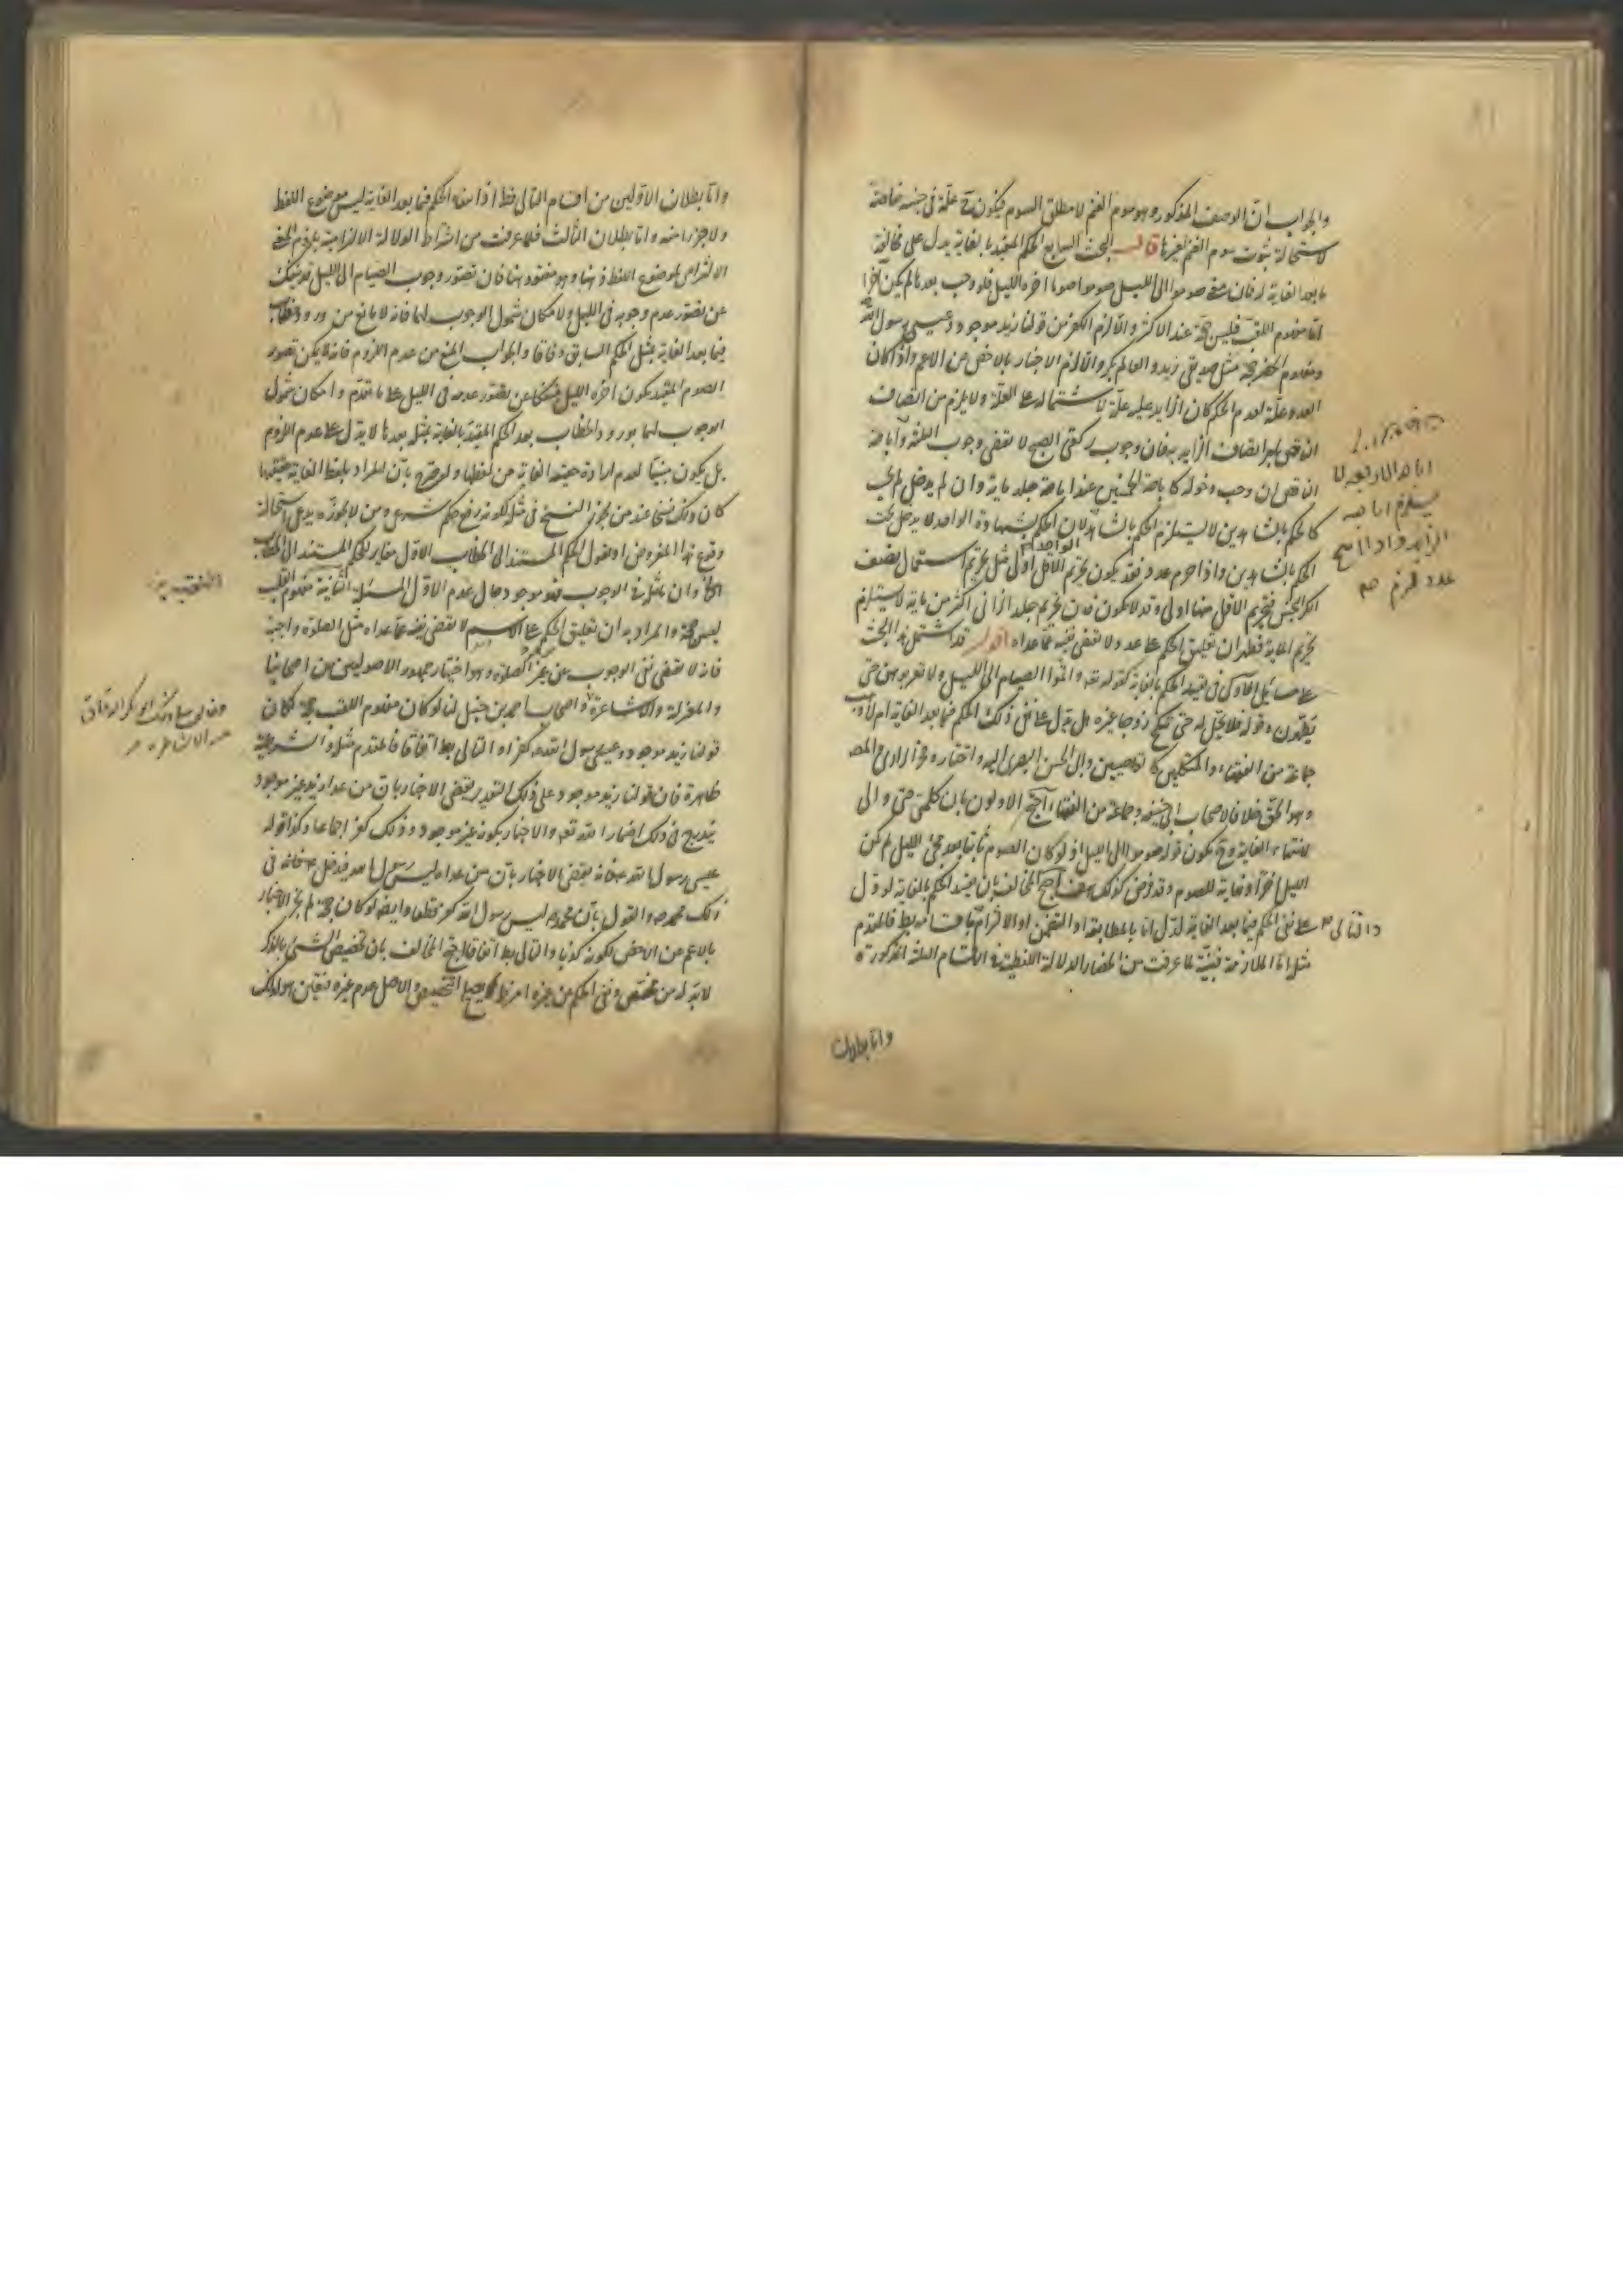 والجواب انّ الوصف المذكور هو سوم الغنم لا مطلق السوم فيكون ح علّة في جنسه خاصة
لاستحالة ثبوت سوم الغنم لغيرها قال البحث السابع الحكم المقيد بالغاية يدل على مخالفة
ما بعد الغاية له فان معنى صوموا الى الليل صوموا صوما اخره الليل فلو وجب بعدها لم يكن اخرا
امّا مفهوم اللقب فليس حجة عند الاكثر والّا لزم الكفر من قولنا زيد موجود وعيسى رسول الله
ومفهوم الحصر حجة مثل صديقي زيد والعالم بكر والّا لزم الاخبار بالاخص عن الاعم واذا كان
العدد علّة لعدم الحكم كان الزايد عليه علّة لاشتماله على العلّة ولا يلزم من اتصاف
الناقص بامر اتصاف الزايد به فان وجوب ركعتي الصبح لا تقضي وجوب الثلثة واباحة
الناقص ان وجب دخوله كاباحة الخمسين عند اباحة جلد ماية وان لم يدخل لم يجب
كالحكم بالشاهدين لا يستلزم الحكم بالشاهد الواحد لان الحكم بشهادة الواحد لا يدخل تحت
الحكم بالشاهدين واذا حرم عدد فقد يكون تحريم الاقل اولى مثل تحريم استعمال نصف
الكر النجس فتحريم الاقل منها اولى وقد لا يكون فان تحريم جلد الزاني اكثر من ماية لا يستلزم
تحريم الماية فظهر ان تعليق الحكم على عدد لا تقضي نفيه عمّا عداه اقول قد اشتمل هذا البحث
على مسائل الاولى في تقييد الحكم بالغاية كقوله تعه واتموا الصيام الى الليل ولا تقربوهن حتى
يطهرن وقوله فلا تحل له حتى تنكح زوجا غيره هل تدل على نفي ذلك الحكم فيما بعد الغاية ام لا ذهب
جماعة من الفقهاء والمتكلمين كالقاضيين وابي الحسن البصري اليه واختاره فخر الرازي والمص
وهو الحق خلافا لاصحاب ابي حنيفة وجماعة من الفقهاء احتج الاولون بان كلمتي حتى والى
لانتهاء الغاية وح يكون قوله صوموا الى الليل اذ لو كان الصوم ثابتا بعد مجئ الليل لم يكن
الليل اخرا وغاية للصوم وقد فرض كذلك هف احتج المخالف بان تقييد الحكم بالغاية لو دل
على نفي الحكم فيما بعد الغاية لدل امّا بالمطابقة او التضمن او الالتزام والتالي باقسامه بط فالمقدم
مثله امّا الملازمة فبيّنة لما عرفت من انحصار الدلالة اللفظية في الاقسام الثلثة المذكورة
اباحه
يستلزم اباحه
الزايد واذا ابيح
عدد لم يلزم
وامّا بطلان
وامّا بطلان الاوّلين من اقسام التالي فظ اذ انتفاء الحكم فيما بعد الغاية ليس موضوع اللفظ
ولا جزءا منه وامّا بطلان الثالث فلما عرفت من اشتراط الدلالة الالتزامية بلزوم المعنى
الالتزامي لموضوع اللفظ ذهنا وهو مفقود هنا فان تصور وجوب الصيام الى الليل قد ينفك
عن تصور عدم وجوبه في الليل ولامكان شمول الوجوب لهما فانه لا مانع من ورود خطاب
فيما بعد الغاية بمثل الحكم السابق وفاقا والجواب المنع من عدم اللزوم فانه لا يمكن تصور
الصوم المقيد بكون اخره الليل منفكا عن تصور عدمه في الليل على ما تقدّم وامكان شمول
الوجوب لهما بورود الخطاب بعد الحكم المقيد بالغاية بمثله بعدها لا يدل على عدم اللزوم
بل يكون مبينا لعدم ارادة حقيقة الغاية من لفظها ولو صرّح بأن المراد بلفظ الغاية حقيقتها
كان ذلك نسخا عند من يجوز النسخ في مثله لكونه يرفع حكم شرعي ومن لا يجوّزه يدعي استحالة
وقوع هذا المفروض او نقول الحكم المستند الى الخطاب الاوّل مغاير للحكم المستند الى الخطاب
الثاني وان تماثلا في الوجوب فهو موجود حال عدم الاوّل المسئلة الثانية مفهوم اللقب
ليس حجة والمراد به ان تعليق الحكم على الاسم لا تقضي نفيه عمّا عداه مثل الصلوة واجبة
فانه لا تقضي نفي الوجوب عن غير الصلوة وهو اختيار جمهور الاصوليين من اصحابنا
والمعتزلة والاشاعرة واصحاب احمد بن حنبل لنا لو كان مفهوم اللقب حجة لكان
قولنا زيد موجود وعيسى رسول الله كفرا والتالي بط اتفاقا فالمقدم مثله والشرطية
ظاهرة فان قولنا زيد موجود على ذلك التقدير يقتضي الاخبار بان من عدا زيد غير موجود
يندرج في ذلك اخباره الله تعه والاخبار بكونه غير موجود وذلك كفر اجماعا وكذا قوله
عيسى رسول الله فانه يقتضي الاخبار بأن من عداه ليس رسولا لله فيدخل في
ذلك محمد ص والقول بأن محمدا ليس رسول الله كفر قطعا وايضا لو كان حجة لم يجز الاخبار
بالاعم عن الاخص لكونه كذبا والتالي بط اتفاقا احتج المخالف بان تخصيص الشئ بالذكر
لا بدّ له من مخصّص ونفي الحكم عن غيره امر يصلح للتخصيص والاصل عدم غيره فتعين هو لذلك
وخالف في ذلك ابو بكر الدقاق
من الاشاعرة